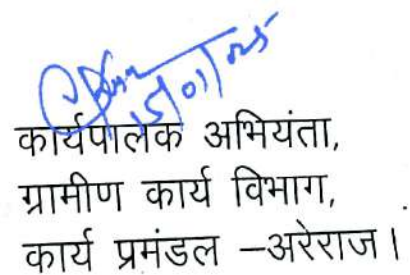 15/01/25
कार्यपालक अभियंता,
ग्रामीण कार्य विभाग,
कार्य प्रमंडल –अरेराज।